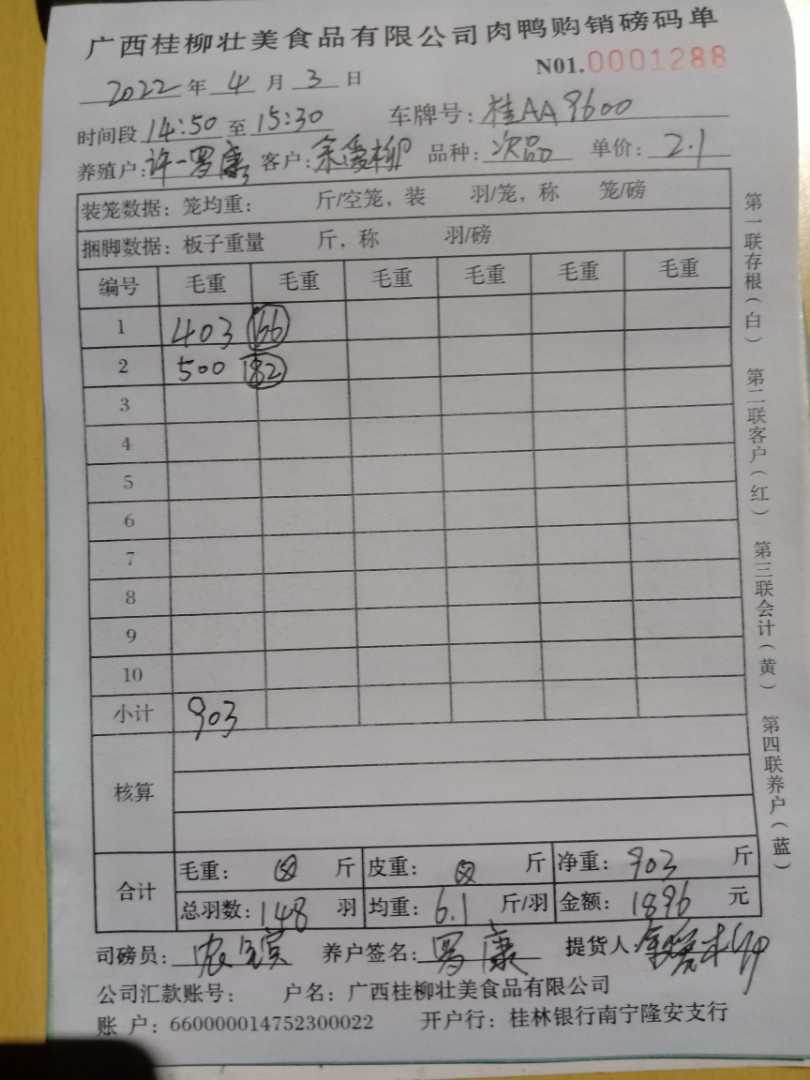 广西桂柳壮美食品有限公司肉鸭购销磅码单
2022年 4月 3日 N01.0001288
时间段 14:50 至 15:30 车牌号: 桂AA9600
养殖户: 许一罗康 客户: 余爱柳 品种: 次品 单价: 2.1
装笼数据: 笼均重: 斤/空笼, 装 羽/笼, 称 笼/磅
捆脚数据: 板子重量 斤, 称 羽/磅
编号 毛重 毛重 毛重 毛重 毛重 毛重
1 403 66
2 500 82
3
4
5
6
7
8
9
10
小计 903
核算
合计
毛重: 斤 皮重: 斤 净重: 903 斤
总羽数: 148 羽 均重: 6.1 斤/羽 金额: 1896 元
司磅员: 养户签名: 罗康 提货人:
公司汇款账号: 户名: 广西桂柳壮美食品有限公司
账 户: 660000014752300022 开户行: 桂林银行南宁隆安支行
第一联存根(白) 第二联客户(红) 第三联会计(黄) 第四联养户(蓝)